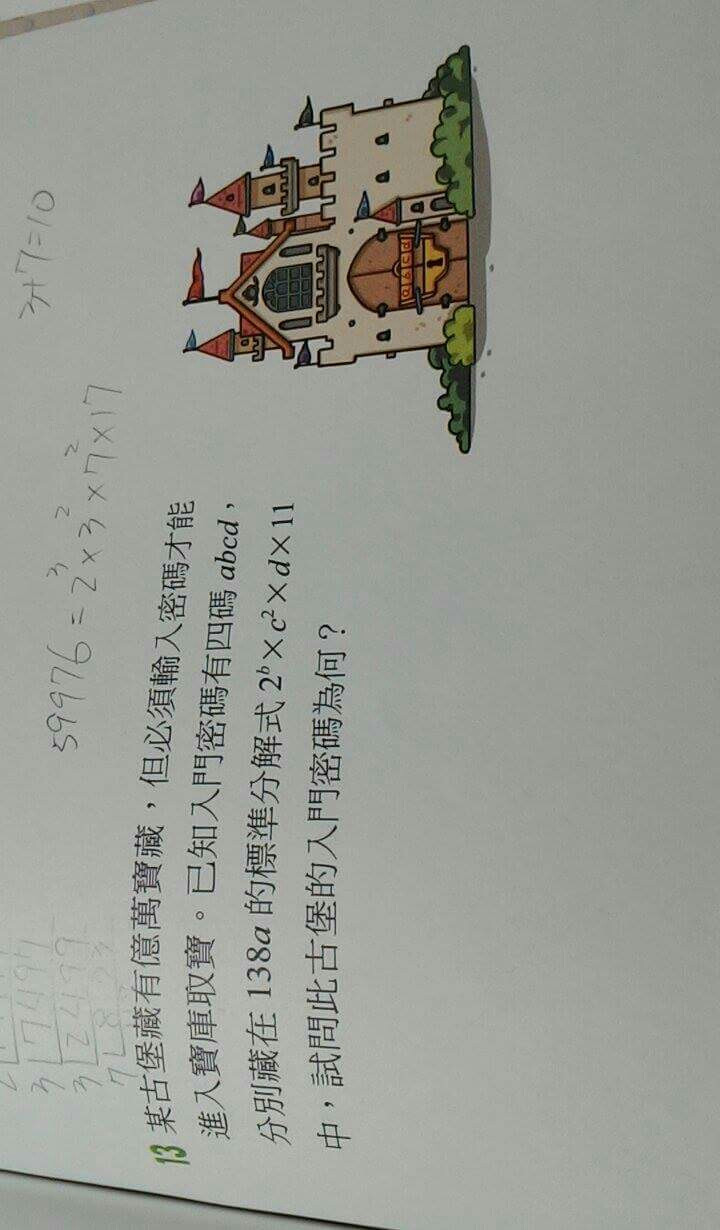 3+7=10
59976=2³×3²×7²×17
3 7497
3 2499
13 某古堡藏有億萬寶藏，但必須輸入密碼才能
進入寶庫取寶。已知入門密碼有四碼 abcd，
分別藏在 138a 的標準分解式 2ᵇ×c²×d×11
中，試問此古堡的入門密碼為何？